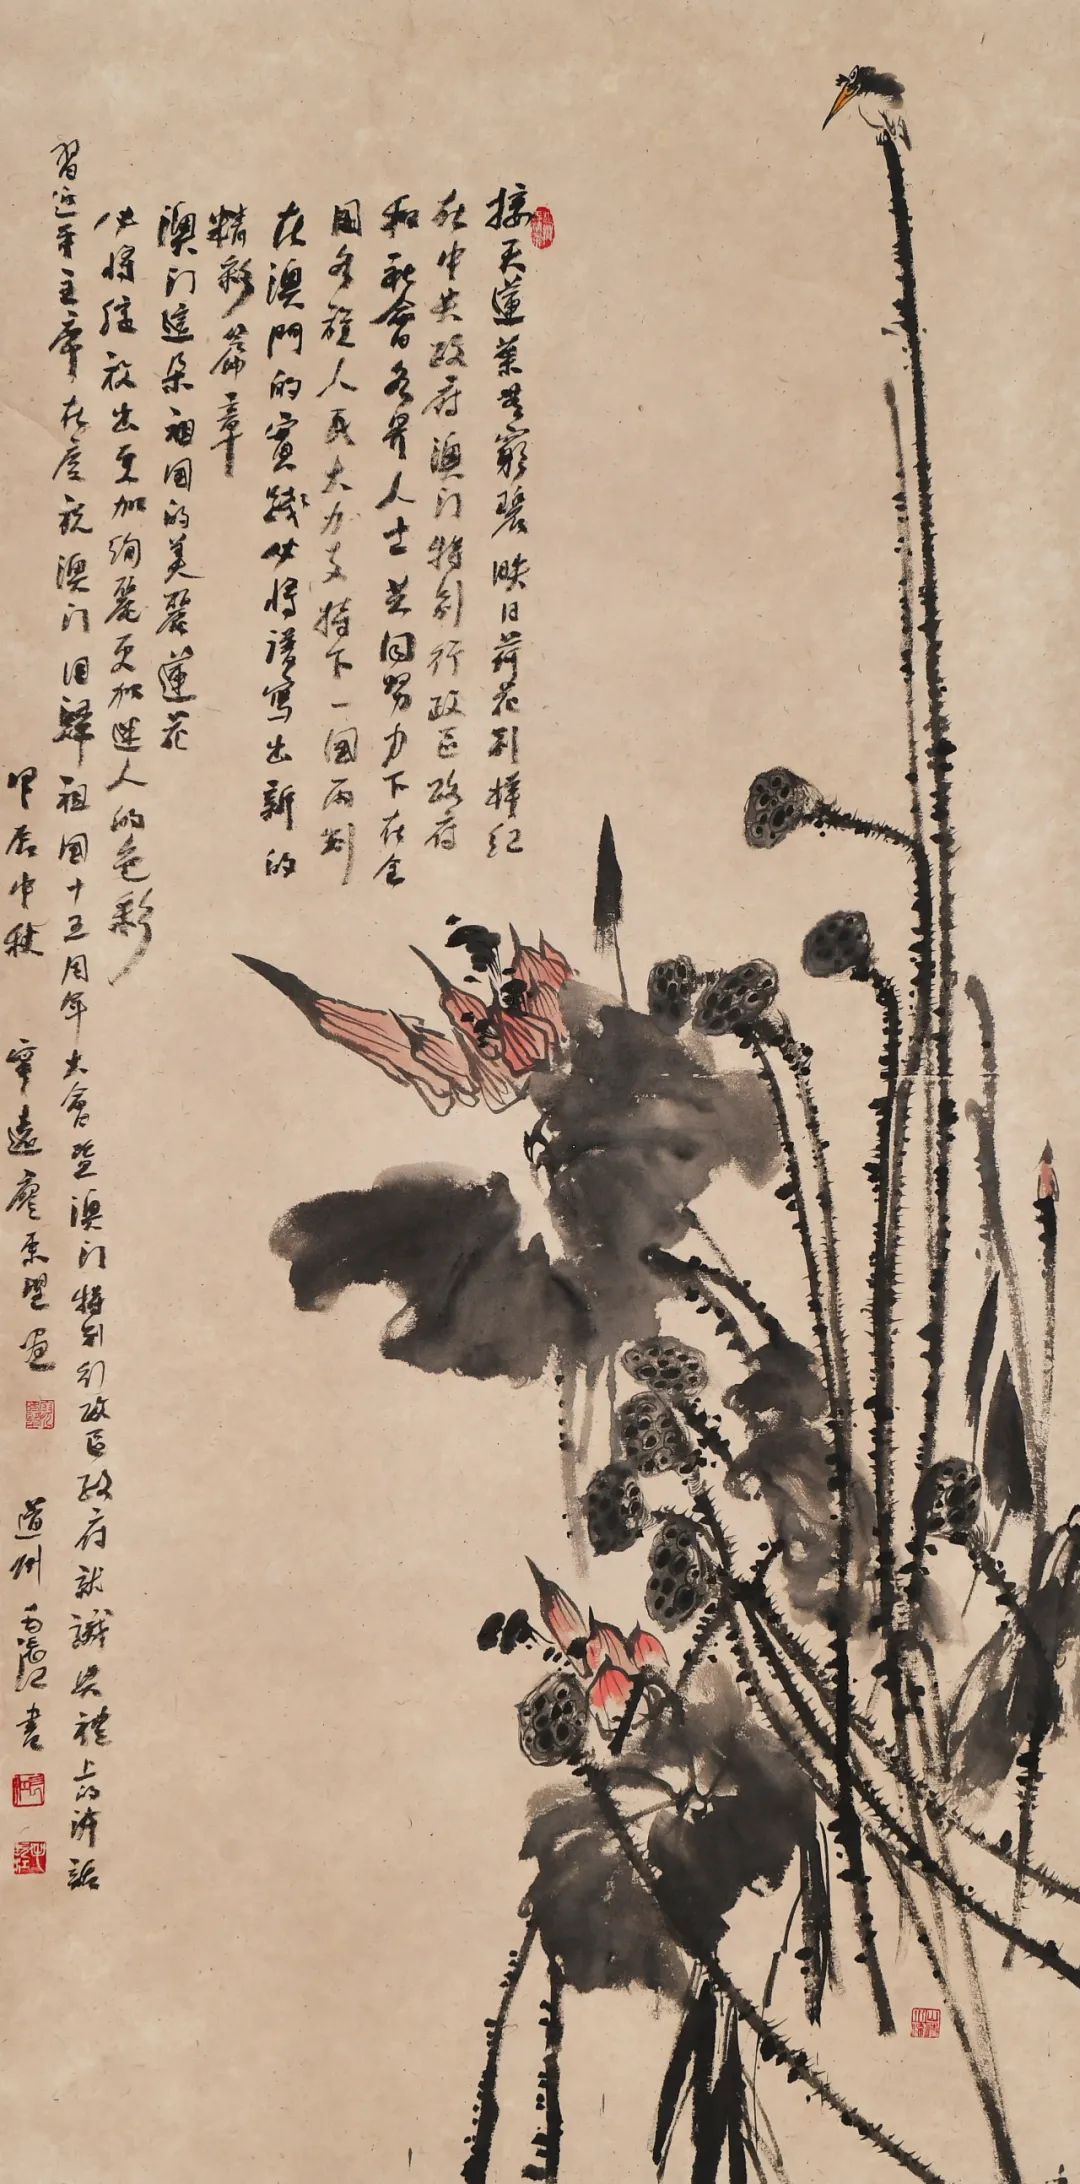 接天蓮葉無窮碧映日荷花别樣红
在中央政府澳门特别行政区政府
和社會各界人士共同努力下在全
国各族人民大力支持下一国两制
在澳門的實踐必将譜寫出新的
精彩篇章
澳门這朵祖国的美麗蓮花
必将绽放出更加绚麗更加迷人的色彩
習近平主席在慶祝澳门回歸祖國十五周年大會暨澳门特别行政区政府就職典禮上的講話
甲辰中秋 寧遠廖原 画 道州 江書